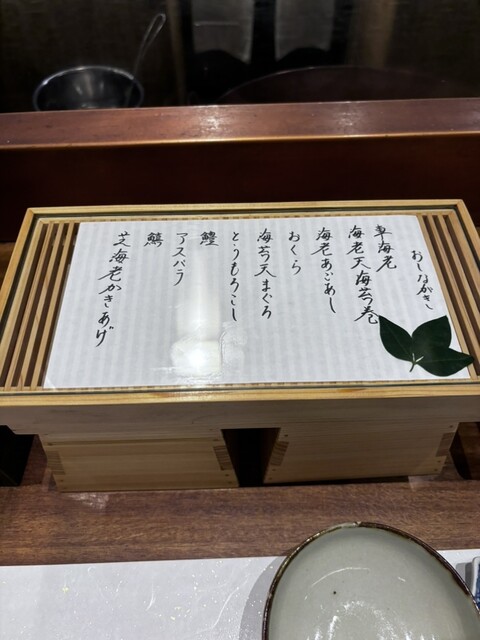 おしながき
車海老
海老天海苔巻
おくら
海老あごあし
海苔天まぐろ
とうもろこし
鱧
アスパラ
鱚
芝海老かきあげ